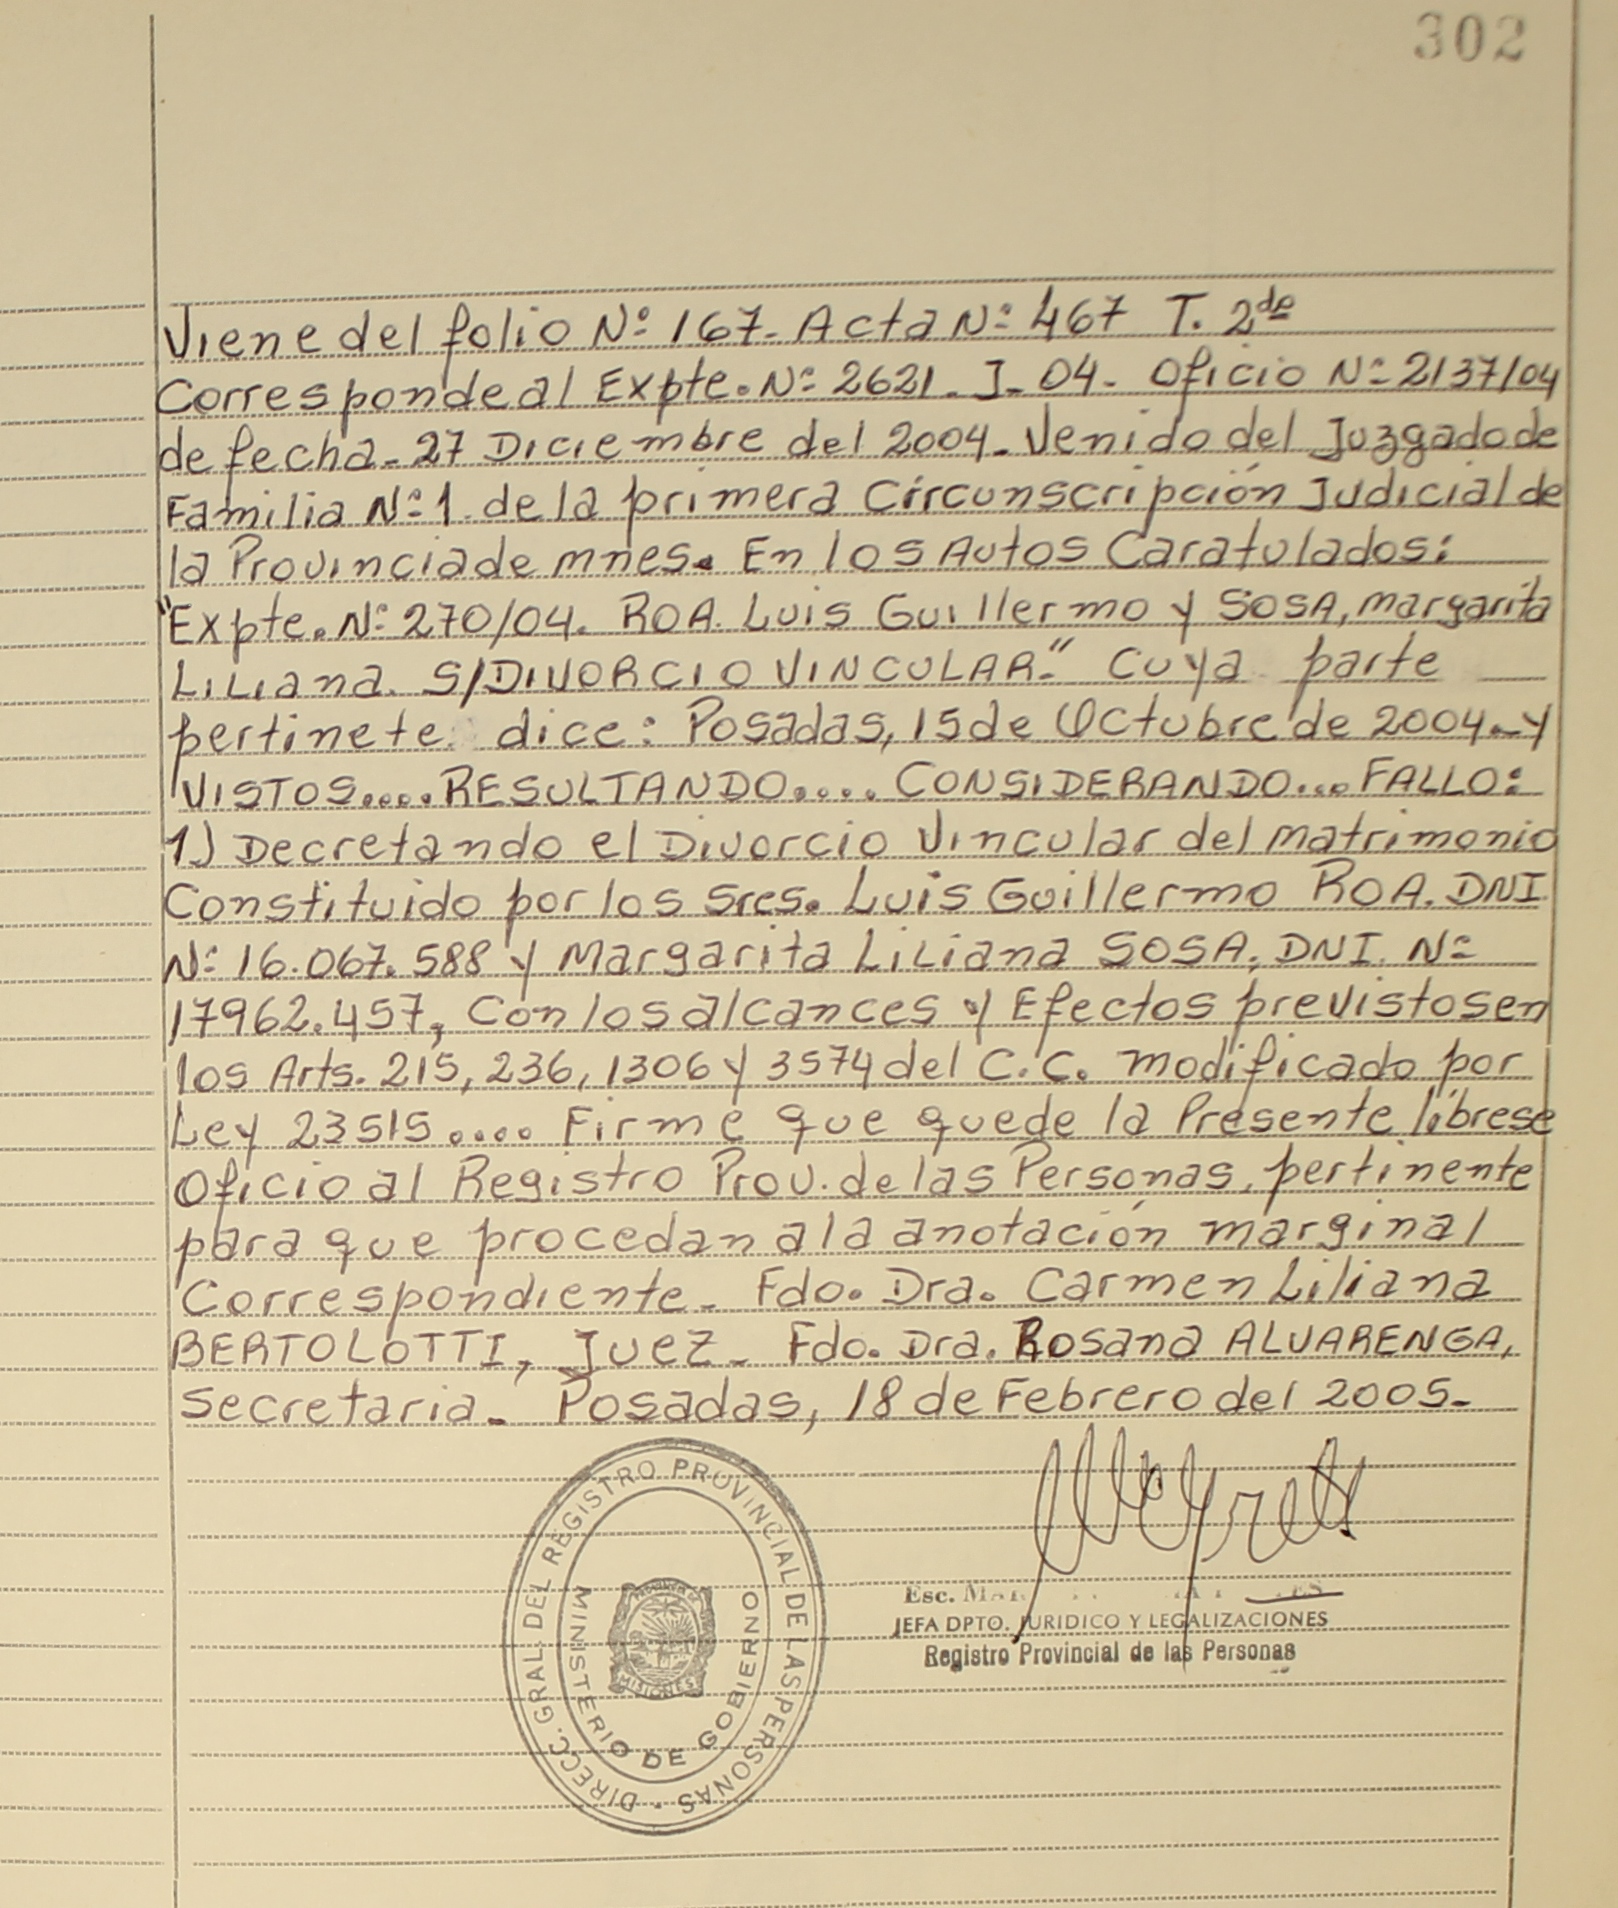 302
Viene del folio Nº 167. Acta Nº 467 T. 2do
Corresponde al Expte. Nº 2621. J. 04. Oficio Nº 2137/04
de fecha. 27 Diciembre del 2004. Venido del Juzgado de
Familia Nº 1 de la primera Circunscripción Judicial de
la Provincia de mnes. En los Autos Caratulados:
"Expte. Nº 270/04. ROA. Luis Guillermo y SOSA, margarita
Liliana. S/DIVORCIO VINCULAR." Cuya parte
pertinete dice: Posadas, 15 de Octubre de 2004. y
VISTOS.... RESULTANDO.... CONSIDERANDO... FALLO:
1) Decretando el Divorcio Vincular del matrimonio
Constituido por los Sres. Luis Guillermo ROA. DNI
Nº 16.067.588 y Margarita Liliana SOSA, DNI. Nº
17962.457, Con los alcances y Efectos previstos en
los Arts. 215, 236, 1306 y 3574 del C.C. modificado por
Ley 23515.... Firme que quede la Presente líbrese
Oficio al Registro Prov. de las Personas, pertinente
para que procedan a la anotación marginal
Correspondiente. Fdo. Dra. Carmen Liliana
BERTOLOTTI, Juez. Fdo. Dra. Rosana ALVARENGA,
Secretaria. Posadas, 18 de Febrero del 2005.
DIRECC. GRAL. DEL REGISTRO PROVINCIAL DE LAS PERSONAS
MINISTERIO DE GOBIERNO
PROVINCIA DE
MISIONES
Esc.
JEFA DPTO. JURIDICO Y LEGALIZACIONES
Registro Provincial de las Personas